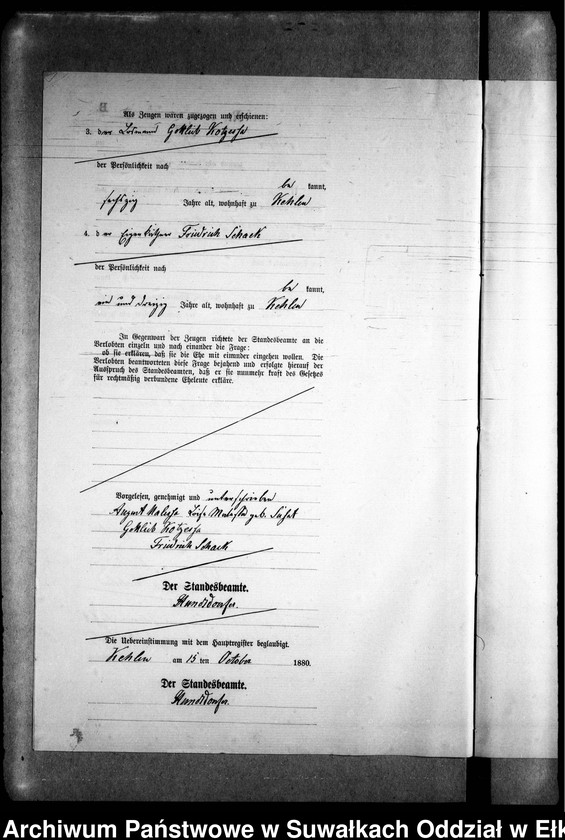 Als Zeugen waren zugezogen und erschienen:
3. der Losmann Gottlieb Kotzessa
der Persönlichkeit nach
be kannt,
sechszig Jahre alt, wohnhaft zu Kehlen
4. der Eigenkäthner Friedrich Schack
der Persönlichkeit nach
be kannt,
ein und dreizig Jahre alt, wohnhaft zu Kehlen
In Gegenwart der Zeugen richtete der Standesbeamte an die
Verlobten einzeln und nach einander die Frage:
ob sie erklären, daß sie die Ehe mit einander eingehen wollen. Die
Verlobten beantworteten diese Frage bejahend und erfolgte hierauf der
Ausspruch des Standesbeamten, daß er sie nunmehr kraft des Gesetzes
für rechtmäßig verbundene Eheleute erkläre.
Vorgelesen, genehmigt und unterschrieben
August geb.
Gottlieb Kotzessa
Friedrich Schack
Der Standesbeamte.
Die Uebereinstimmung mit dem Hauptregister beglaubigt.
Kehlen am 15 ten October 1880.
Der Standesbeamte.
Archiwum Państwowe w Suwałkach Oddział w Ełk